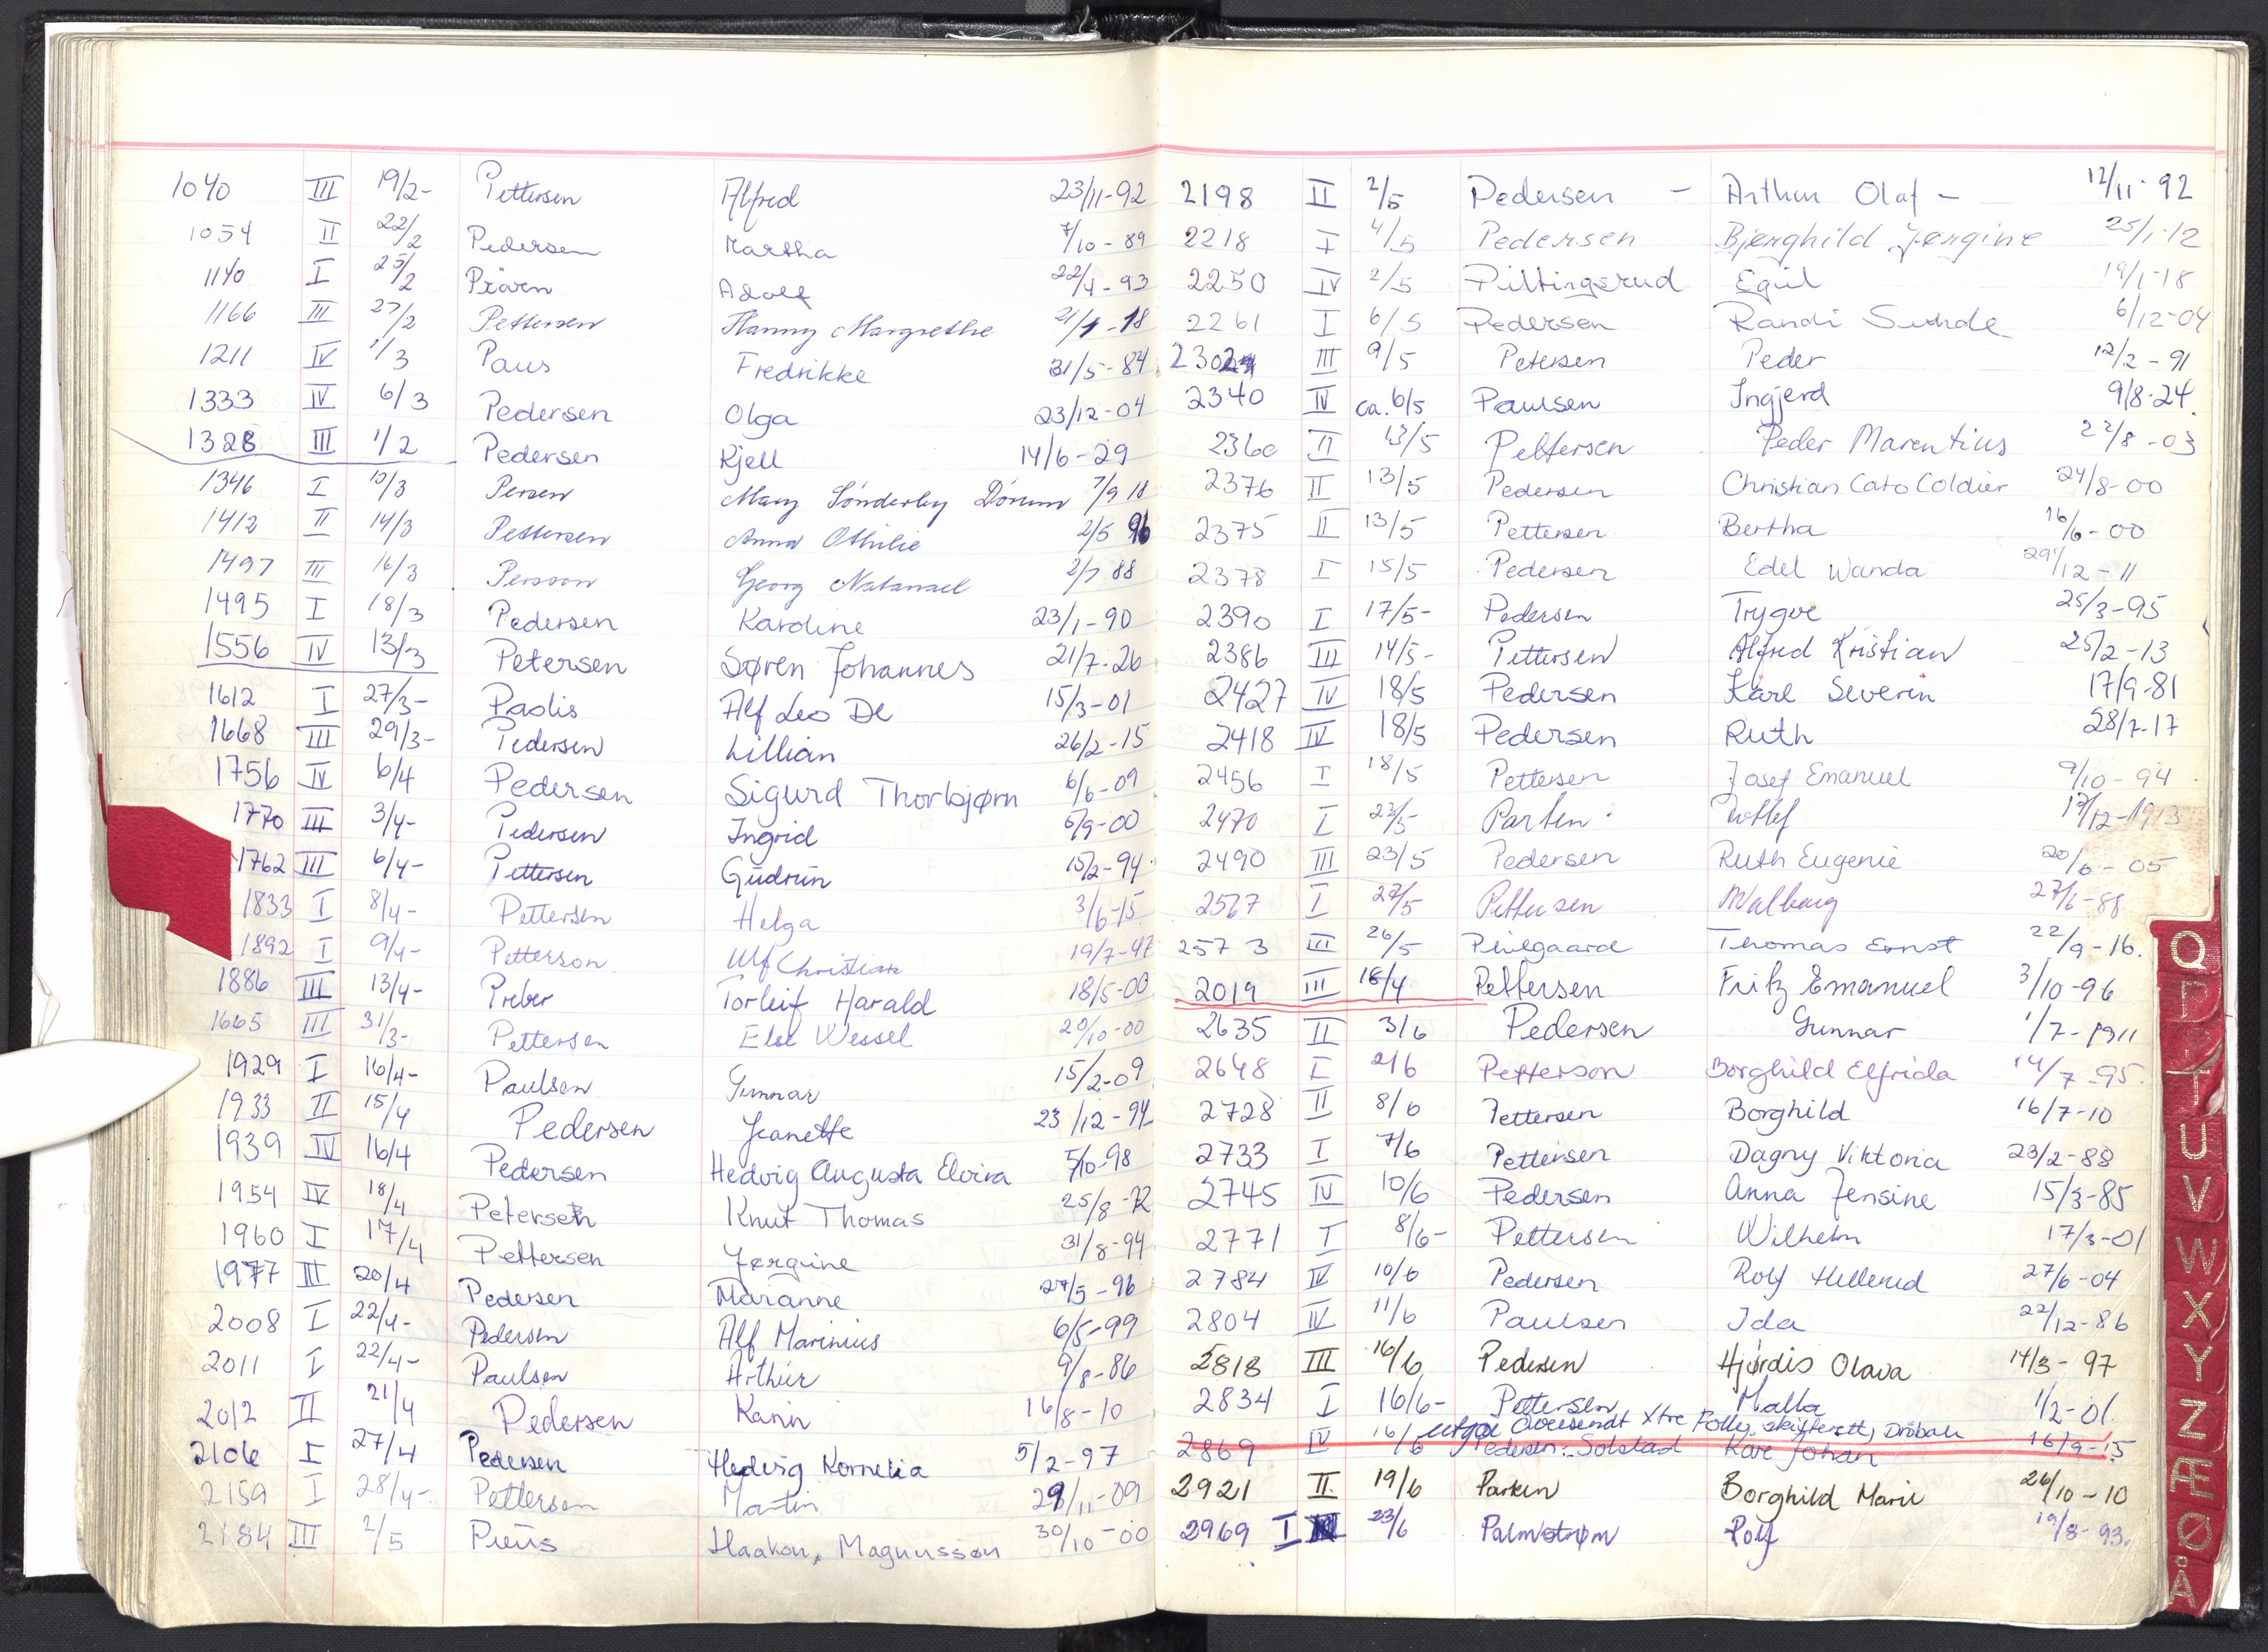 1040 III 19/2- Pettersen Alfred 23/11-92
1054 II 22/2 Pedersen Martha 7/10-89
1140 I 25/2 Adolf 22/4-93
1166 III 27/2 Pettersen Margrethe
1211 IV 1/3 Paus Fredrikke 31/5-84
1333 IV 6/3 Pedersen Olga 23/12-04
1328 III 1/2 Pedersen Kjell 14/6-29
1346 I Persen Mary Sönderby 7/9 18
1412 II 14/3 Pettersen Anna Othilie 2/5 96
1497 III 16/3 Persson Georg Natanael 2/7 88
1495 I 18/3 Pedersen Karoline 23/1-90
1556 IV 13/3 Petersen Søren Johannes 21/7-26
1612 I 27/3- Paolis Alf Leo De 15/3-01
1668 III 29/3- Pedersen Lillian 26/2-15
1756 IV 6/4 Pedersen Sigurd Thorbjørn 6/6-09
1770 III 3/4- Pedersen Ingrid 5/9-00
1762 III 6/4- Pettersen Gudrun 15/2-94
1833 I 8/4- Pettersen Helga 3/6-15
1892 I 9/4- Petterson Ulf Christian 19/7-47
1886 III 13/4- Preber Torleif Harald 18/5-00
1665 III 31/3- Pettersen Else Wessel 20/10-00
1929 I 16/4- Paulsen Gunnar 15/2-09
1933 II 15/4 Pedersen Jeanette 23/12-94
1939 IV 16/4 Pedersen Hedvig Augusta Elvira 5/10-98
1954 IV 18/4 Petersen Knut Thomas 25/8-72
1960 I 17/4 Pettersen Jørgine 31/8-94
1977 III 20/4 Pedersen Marianne 27/5-96
2008 I 22/4- Pedersen Alf Marinius 6/5-99
2011 I 22/4- Paulsen Arthur 9/8-86
2012 II 21/4 Pedersen Karin 16/8-10
2106 I 27/4 Pedersen Hedvig Kornelia 5/2-97
2159 I 28/4- Pettersen Martin 29/11-09
2184 III 2/5 Haakon, Magnusson 30/10-00
2198 II 2/5 Pedersen - Arthur Olaf - 12/11-92
2218 I 4/5 Pedersen Bjørghild Jørgine 25/1-12
2250 IV 2/5 Piltingsrud Egil 19/1-18
2261 I 6/5 Pedersen Randi Sunde 6/12-04
2302 III 9/5 Petersen Peder 12/2-91
2340 IV ca. 6/5 Paulsen Ingjerd 9/8-24
2360 II 13/5 Pettersen Peder Marentius 22/8-03
2376 II 13/5 Pedersen Christian Cato Coldier 24/8-00
2375 II 13/5 Pettersen Bertha 16/6-00
2378 I 15/5 Pedersen Edel Wanda 29/12-11
2390 I 17/5- Pedersen Trygve 25/3-95
2386 III 14/5- Pettersen Alfred Kristian 25/2-13
2427 IV 18/5 Pedersen Karl Severin 17/9-81
2418 IV 18/5 Pedersen Ruth 28/7-17
2456 I 18/5 Pettersen Josef Emanuel 9/10-94
2470 I 23/5 Detlef
2490 III 23/5 Pedersen Ruth Eugenie 20/6-05
2567 I 27/5 Pettersen Walborg 27/6-88
2573 III 26/5 Thomas Ernst 22/9-16
2019 III 18/4 Pettersen Fritz Emanuel 3/10-96
2635 II 3/6 Pedersen Gunnar 1/7-1911
2648 I 2/6 Petterson Borghild Elfrida 14/7-95
2728 II 8/6 Pettersen Borghild 16/7-10
2733 I 7/6 Pettersen Dagny Viktoria 23/2-88
2745 IV 10/6 Pedersen Anna Jensine 15/3-85
2771 I 8/6- Pettersen Wilhelm 17/3-01
2784 IV 10/6 Pedersen Rolf Hellerud 27/6-04
2804 IV 11/6 Paulsen Ida 22/12-86
2818 III 16/6 Pedersen Hjørdis Olava 14/3-97
2834 I 16/6- Pettersen Malla 1/2-01
utgår Oversendt Ytre Follo skifterett, Drøbak
2869 IV 16/6 Pedersen-Solstad Kåre Johan 16/9-15
2921 II 19/6 Parken Borghild Marie 26/10-10
2969 I 23/6 Palmstrøm Rolf 19/8-93
Q
P
T
U
V
W
X
Y
Z
Æ
Ø
Å